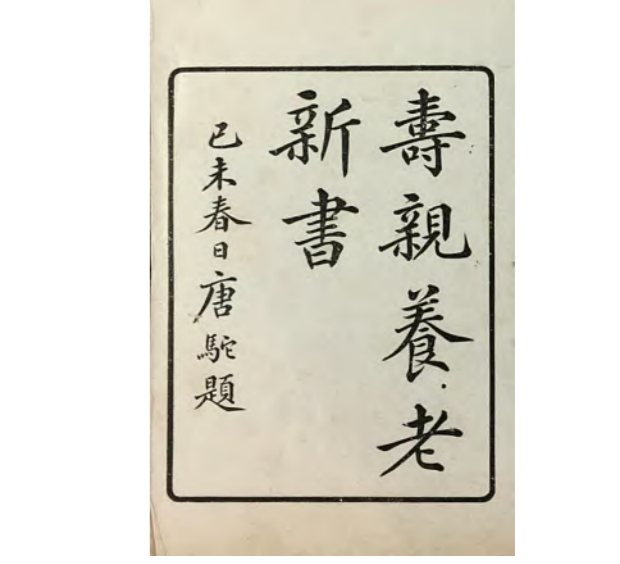 壽親養老
新書
己未春日唐駝題